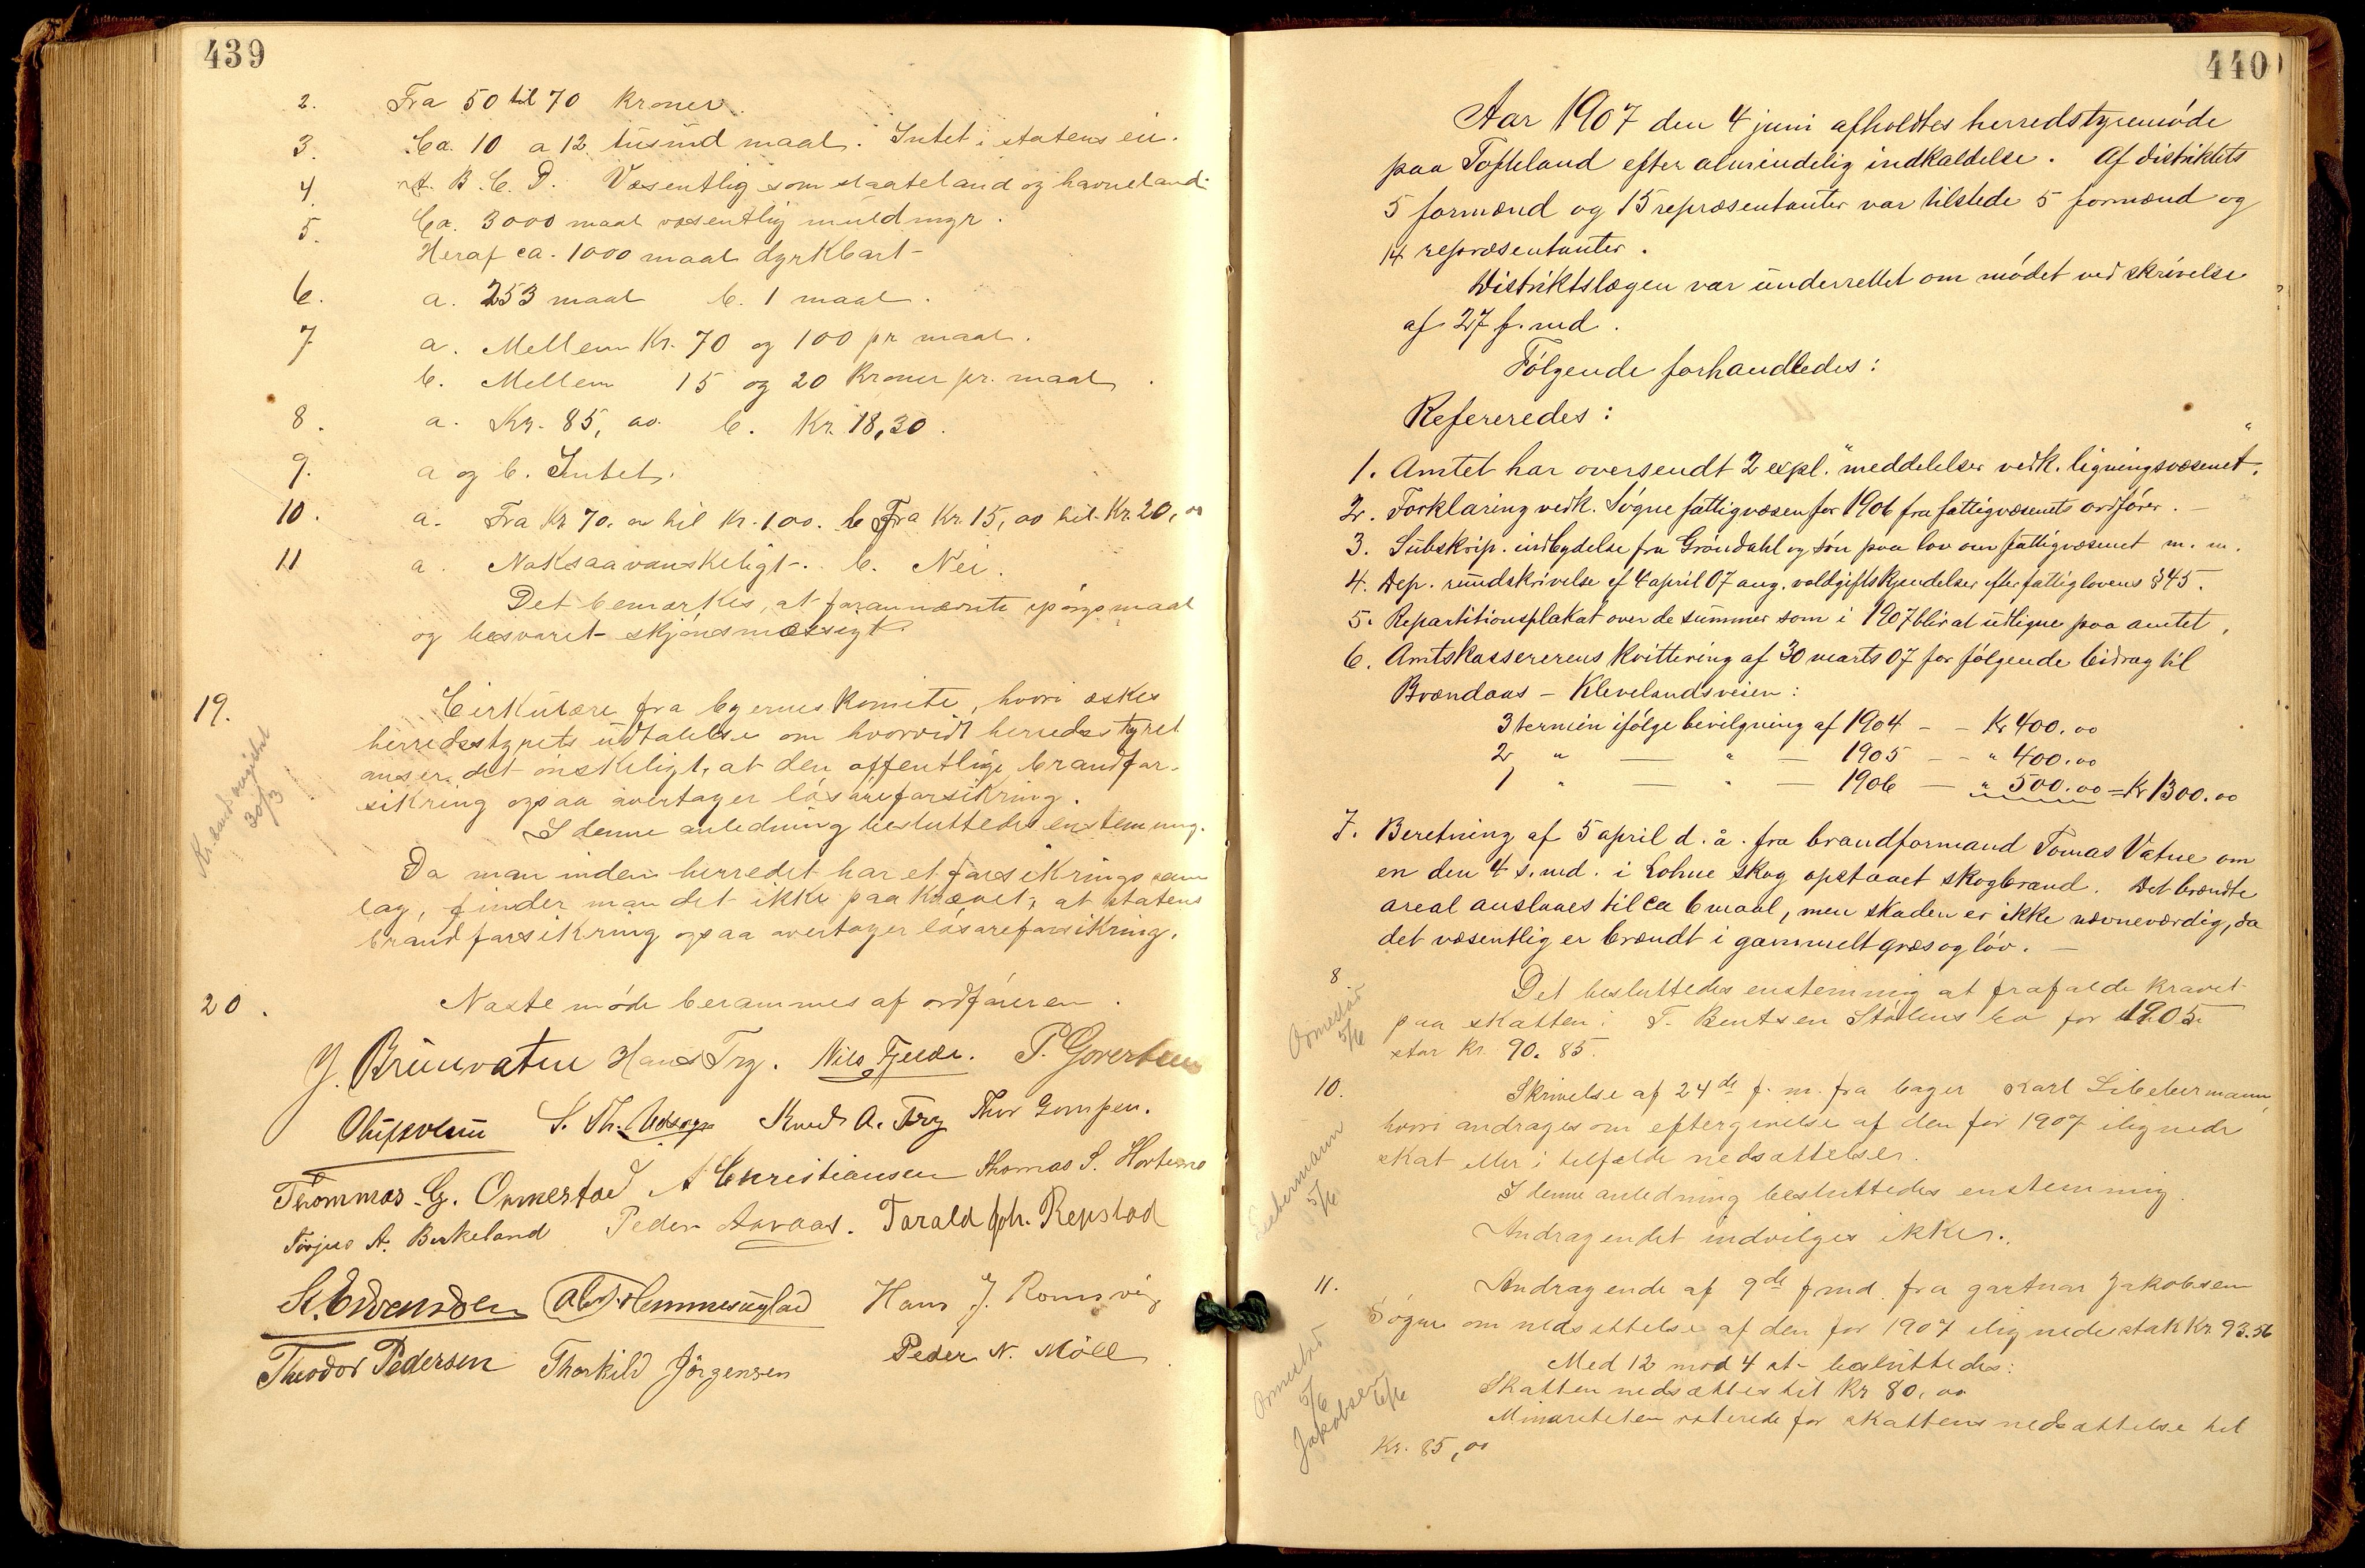 439
2. Fra 50 til 70 kroner.
3. Ca. 10 a 12 tusind maal. Intet i statens eie.
4. A. B. C. D. Væsentlig som slaateland og havneland.
5. Ca. 3000 maal væsentlig muldmyr.
Heraf ca. 1000 maal dyrkbart-
6. a. 253 maal b. 1 maal.
7 a. Mellem Kr. 70 og 100 pr maal.
b. Mellem 15 og 20 Kroner pr. maal.
8. a. Kr. 85, 00. b. Kr. 18,30.
9. a og b. Intet.
10. a. Fra Kr 70. 00 til Kr. 100. b Fra Kr. 15, 00 til Kr. 20, 00
11 a. Noksaa vanskeligt-. b. Nei.
Det bemærkes, at forannævnte spörgsmaal
og besvaret- skjönsmæssigt.
19. Cirkulære fra byernes komite, hvori æskes
herredsstyrets udtalelse om hvorvidt herredsstyret
anser det önskeligt, at den offentlige brandfor-
sikring ogsaa overtager lösöreforsikring.
I denne anledning besluttedes enstemmig.
Da man inden herredet har et forsikrings sam
lag, finder man det ikke paakrævet, at statens
brandforsikring ogsaa overtager lösöreforsikring.
30/3
20. Næste möde berammes af ordföreren.
J. Brunvatne Hans Try. Nils Fjelde. P.
S. Th. Knud A. Try Thor Gompen.
Thommas G. Omnestad A Christiansen Thomas S. Hortemo
Törjus A. Birkeland Peder Aavaas. Tarald Joh. Repstad
Hans J. Romsvig
Theodor Pedersen Thorkild Jörgensen Peder N. Möll
440
Aar 1907 den 4 juni afholdtes herredstyremöde
paa Tofteland efter almindelig indkaldelse. Af distriktets
5 formænd og 15 repræsentanter var tilstede 5 formænd og
14 repræsentanter.
Distriktslægen var underrettet om mödet ved skrivelse
af 27 f. md.
Fölgende forhandledes:
Refereredes:
1. Amtet har oversendt 2 expl. "meddelelser vedk. ligningsvæsenet".
2. Forklaring vedk. Sögne fattigvæsen for 1906 fra fattigvæsenets ordförer. –
3. Subskrip. indbydelse fra Gröndahl og sön paa lov om fattigvæsenet m. m.
4. Dep. rundskrivelse af 4 april 07 ang. voldgiftskjendelser efter fattiglovens § 45.
5. Repartitionsplakat over de summer som i 1907 blir at udligne paa amtet.
6. Amtskassererens kvittering af 30 marts 07 for fölgende bidrag til
Brændaas - Klevelandsveien:
3 termin ifölge bevilgning af 1904 - - Kr 400. 00
2 " — " — 1905 - - " 400. 00
1 " — " — 1906 — " 500. 00 = Kr 1300. 00
7. Beretning af 5 april d. å. fra brandformand Tomas Vatne om
en den 4 s. md. i Lohne skog opstaaet skogbrand. Det brændte
areal anslaaes til ca 6 maal, men skaden er ikke nævneværdig, da
det væsentlig er brændt i gammelt græs og löv. —
8 Det besluttedes enstemmig at frafalde kravet
paa skatten i T. Bentsen Stölens bo for 1905
stor Kr. 90. 85.
5/6
10. Skrivelse af 24de f. m. fra bager Karl Libebermann,
hvori andrages om eftergivelse af den for 1907 ilignede
skat eller i tilfælde nedsættelser.
I denne anledning besluttedes enstemmig.
Andragendet indvilges ikke.
Liebermann
5/6
11. Andragende af 9de f md. fra gartner Jakobsen
Sögne om nedsættelse af den for 1907 ilignede skat Kr. 93.56
Med 12 mod 4 st- besluttedes:
Skatten nedsættes til Kr 80, 00
Minoriteten voterede for skattens nedsættelse til
Kr. 85, 00
5/6
Jakobsen 6/6